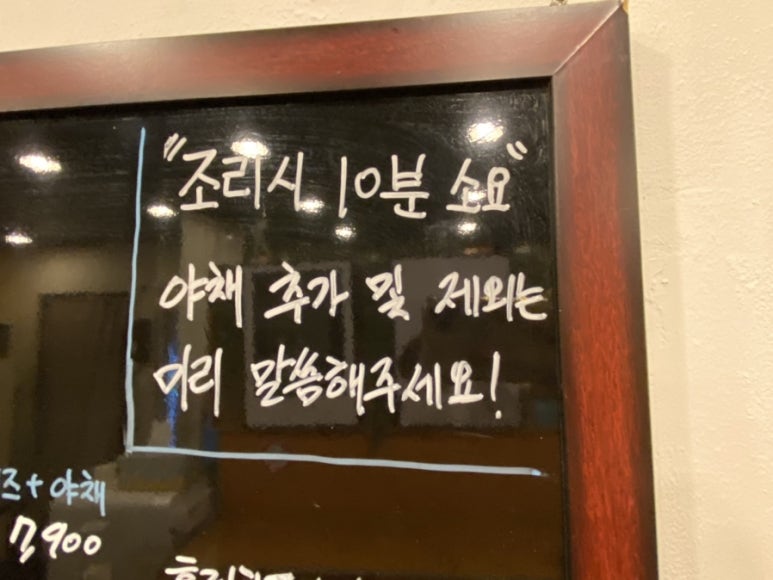 "조리시 10분 소요"
야채 추가 및 제외는
미리 말씀해주세요!
즈+야채
7,900